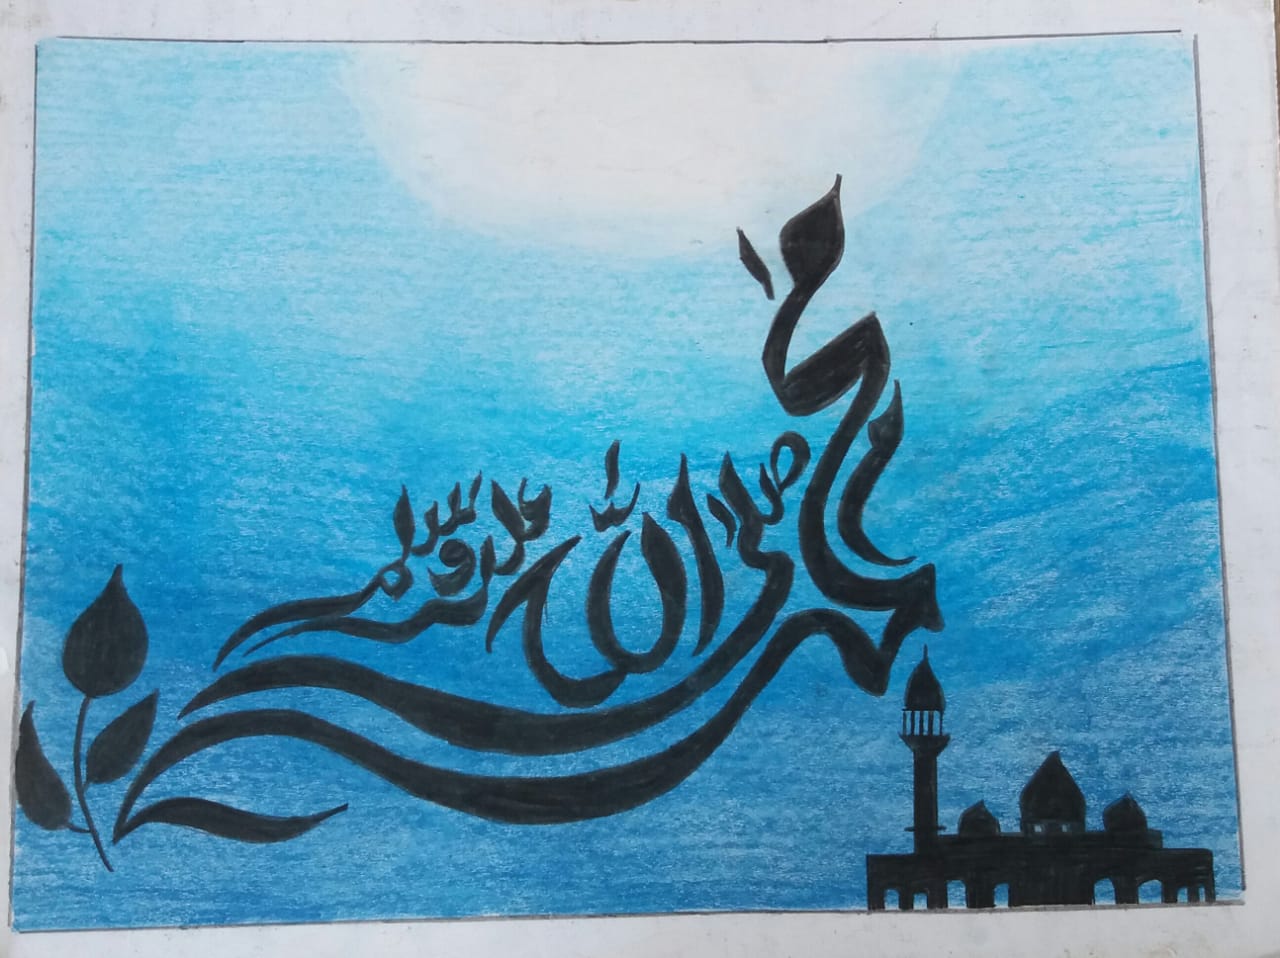 محمد صلى الله عليه وسلم